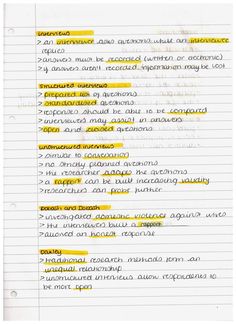 interviews
> an interviewer asks questions whilst an interviewee
replies
> answers must be recorded (written or electronic)
> if answers aren't recorded information may be lost
structured interviews
> prepared list of questions
> standardised questions
> responses should be able to be compared
> interviewers may assist in answers
> open and closed questions
unstructured interviews
> similar to conversation
> no strictly planned questions
> the researcher adapts the questions
> a rapport can be built increasing validity
> researchers can probe further
Dobash and Dobash
> investigated domestic violence against wives
> the interviewers built a rapport
> allowed an honest response
Oakley
> traditional research methods form an
unequal relationship
> unstructured interviews allow respondents to
be more open